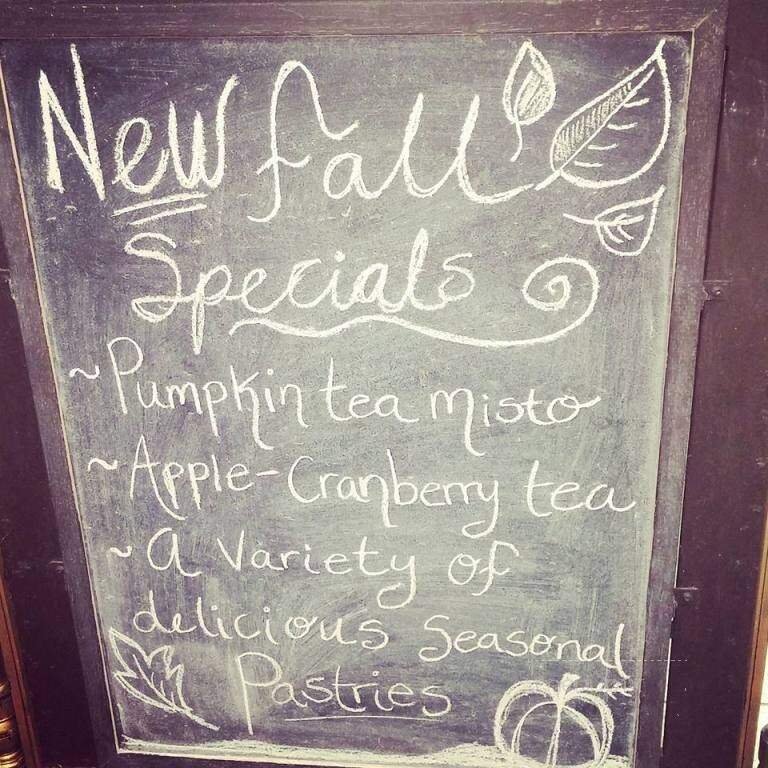 New Fall
Specials
~Pumpkin tea misto
~Apple-Cranberry tea
~A Variety of
delicious Seasonal
Pastries